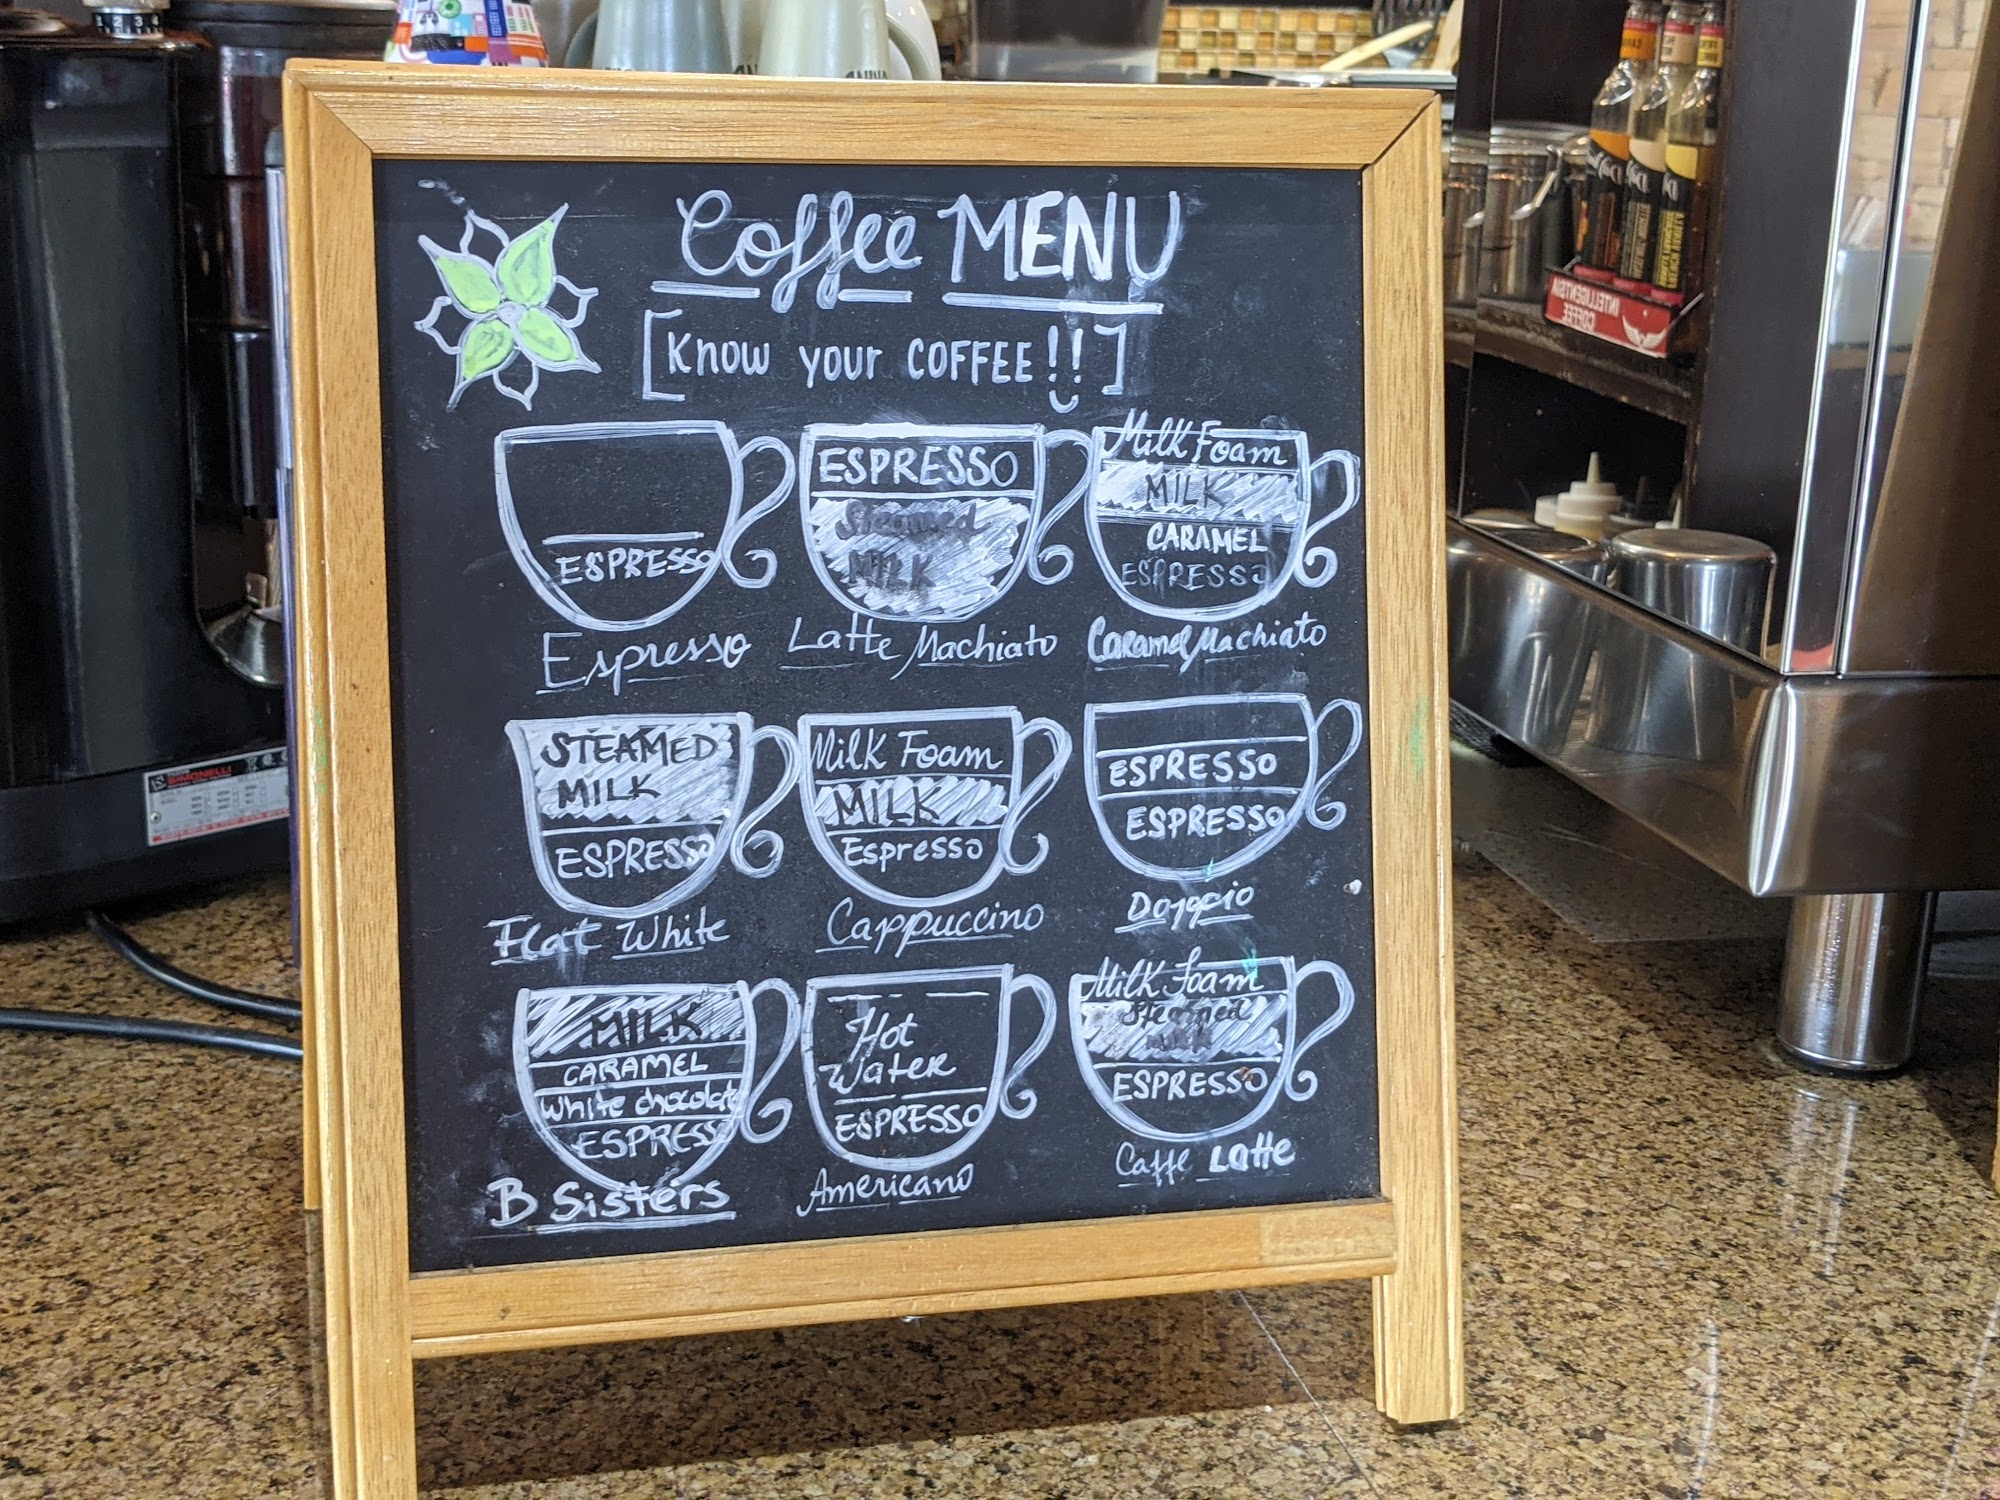 Coffee MENU
[Know your COFFEE!!]
ESPRESSO
Espresso
ESPRESSO
Steamed
MILK
Latte Machiato
Milk Foam
MILK
CARAMEL
ESPRESSO
Caramel Machiato
STEAMED
MILK
ESPRESSO
Flat White
Milk Foam
MILK
Espresso
Cappuccino
ESPRESSO
ESPRESSO
Doppcio
MILK
CARAMEL
White chocolat
ESPRESS
B Sisters
Hot
Water
ESPRESSO
Americano
Milk Foam
Steamed
MILK
ESPRESSO
Caffe Latte
SIMONELLI
INTELLIGENTSIA
COFFEE
1 2 3 4